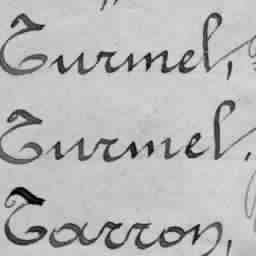 "
Turmel,
Turmel.
Tarron,